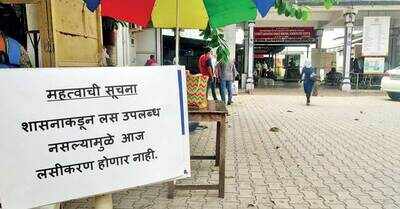 महत्वाची सूचना
शासनाकडून लस उपलब्ध
नसल्यामुळे आज
लसीकरण होणार नाही.